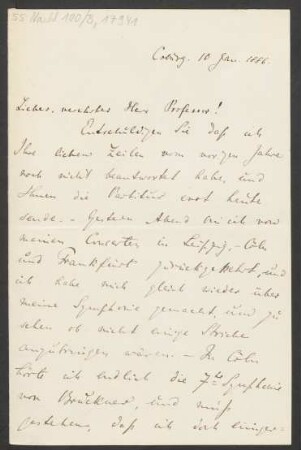 55 Nachl 100/B, 17941
Coburg. 10 Jan. 1888.
Lieber, verehrter Herr Professor!
Entschuldigen Sie daß ich
Ihre lieben Zeilen vom vorigen Jahre
noch nicht beantwortet habe, und
Ihnen die Partitur erst heute
sende. – Gestern Abend bin ich von
meinen Concerten in Leipzig – Cöln
und Frankfurt zurückgekehrt, und
ich habe mich gleich wieder über
meine Symphonie gemacht, und zu
sehen ob nicht einige Striche
anzubringen wären. – In Cöln
hörte ich endlich die 7te Symphonie
von Bruckner, und muß
gestehen, daß ich doch einiger-